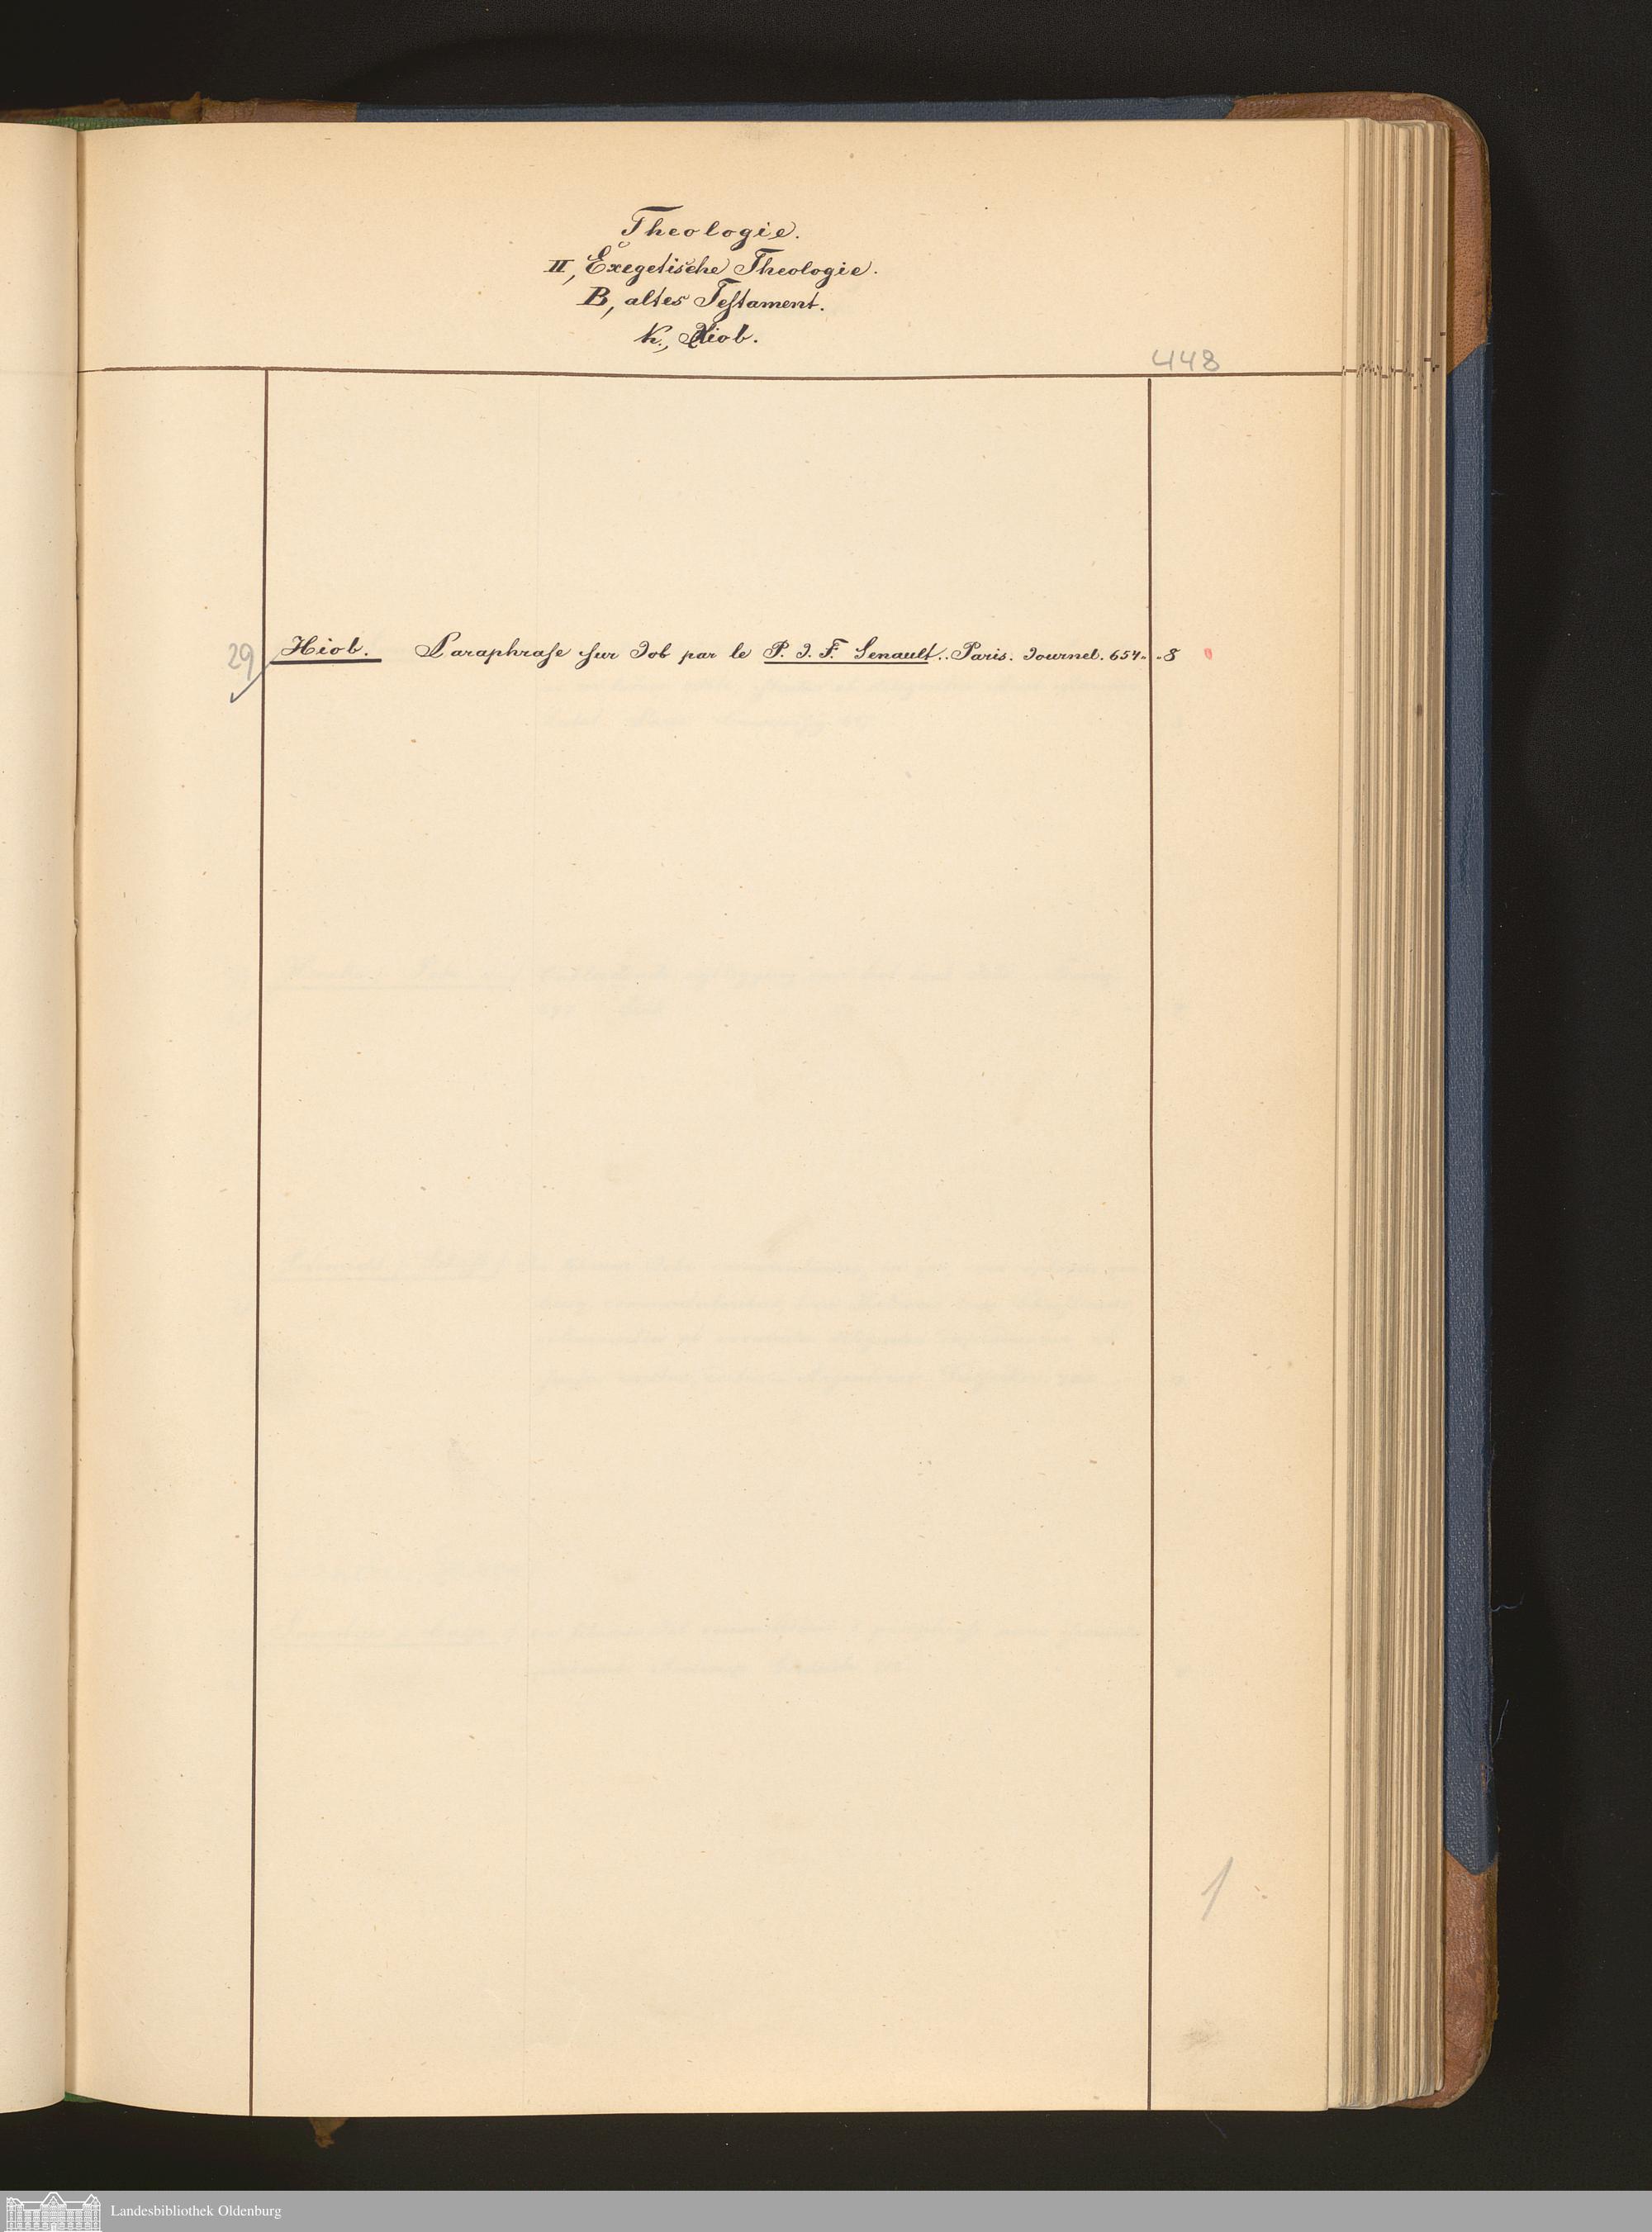 Theologie.
II, Exegetische Theologie.
B, altes Testament.
k., Hiob.
448
29 Hiob. Paraphrase sur Job par le P. J. F. Senault.. Paris. Journel. 654. . 8
1
Landesbibliothek Oldenburg